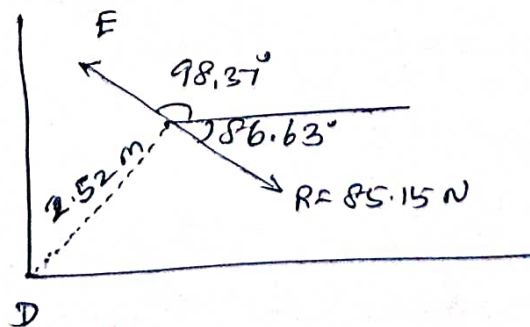 E
98.37°
86.63°
2.52 m
R = 85.15 N
D